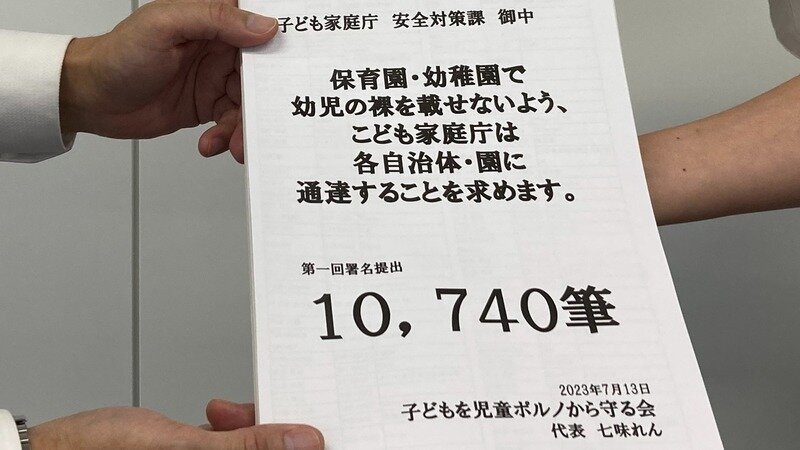 子ども家庭庁 安全対策課 御中
保育園・幼稚園で
幼児の裸を載せないよう、
こども家庭庁は
各自治体・園に
通達することを求めます。
第一回署名提出
10,740筆
2023年7月13日
子どもを児童ポルノから守る会
代表 七味れん